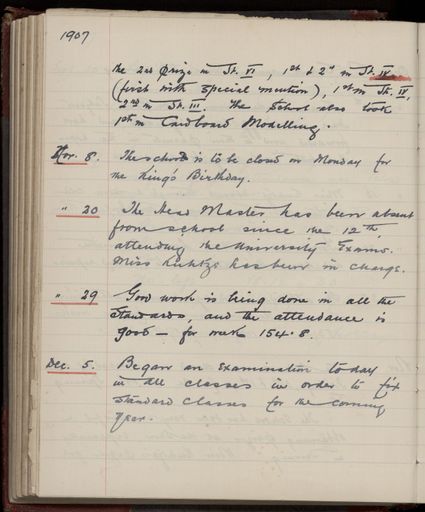 1907
the 2nd prize in St. VI, 1st & 2nd in St. IV
(first with special mention), 1st in St. IV,
2nd in St. III. The School also took
1st in Cardboard Modelling.
Nov. 8. The school is to be closed on Monday for
the King's Birthday.
" 20 The Head Master has been absent
from school since the 12th,
attending the University Exams.
Miss has been in charge.
" 29 Good work is being done in all the
standards, and the attendance is
good — for week 154.8.
Dec. 5. Began an examination today
in all classes in order to fix
standard classes for the coming
year.